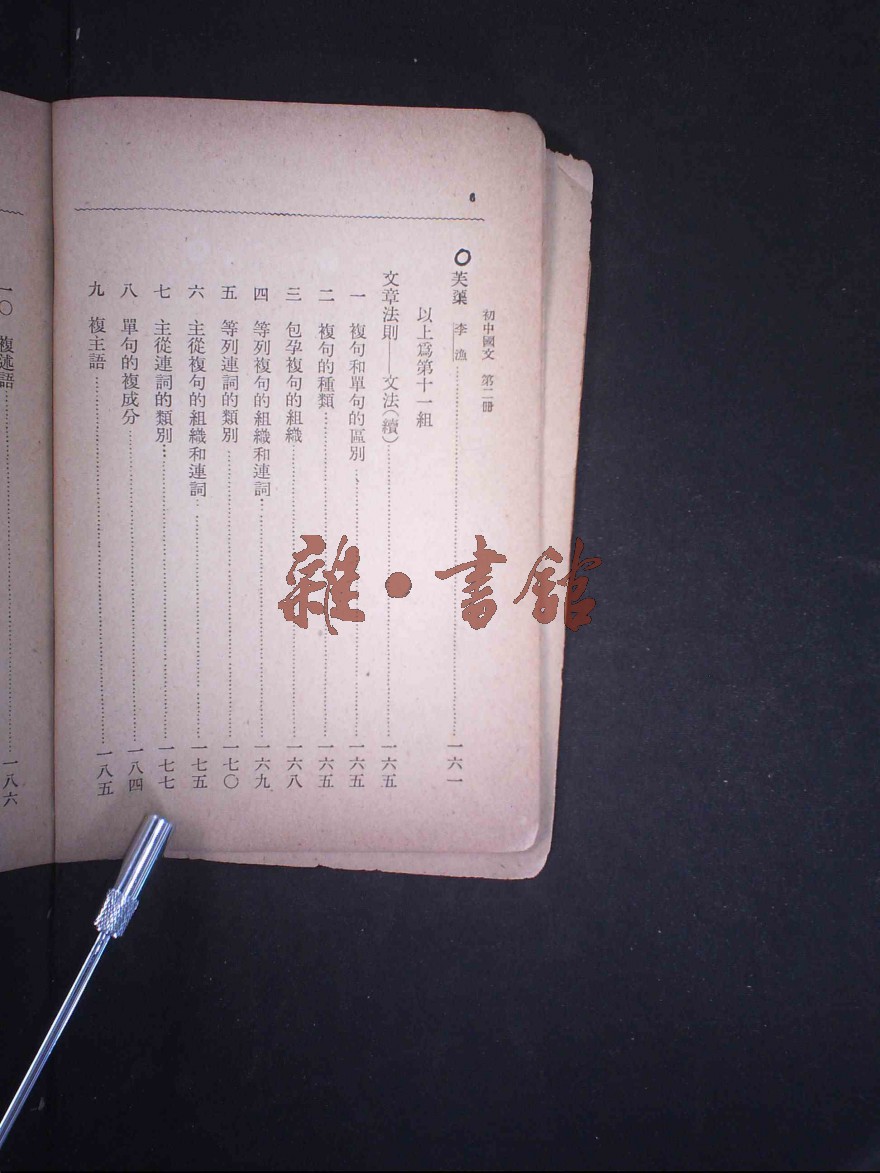 6
初中國文 第二冊
〇芙蕖 李漁……一六一
以上爲第十一組
文章法則——文法(續)……一六五
一 複句和單句的區別……一六五
二 複句的種類……一六五
三 包孕複句的組織……一六八
四 等列複句的組織和連詞……一六九
五 等列連詞的類別……一七〇
六 主從複句的組織和連詞……一七五
七 主從連詞的類別……一七七
八 單句的複成分……一八四
九 複主語……一八五
一〇 複述語……一八六
雜·書館